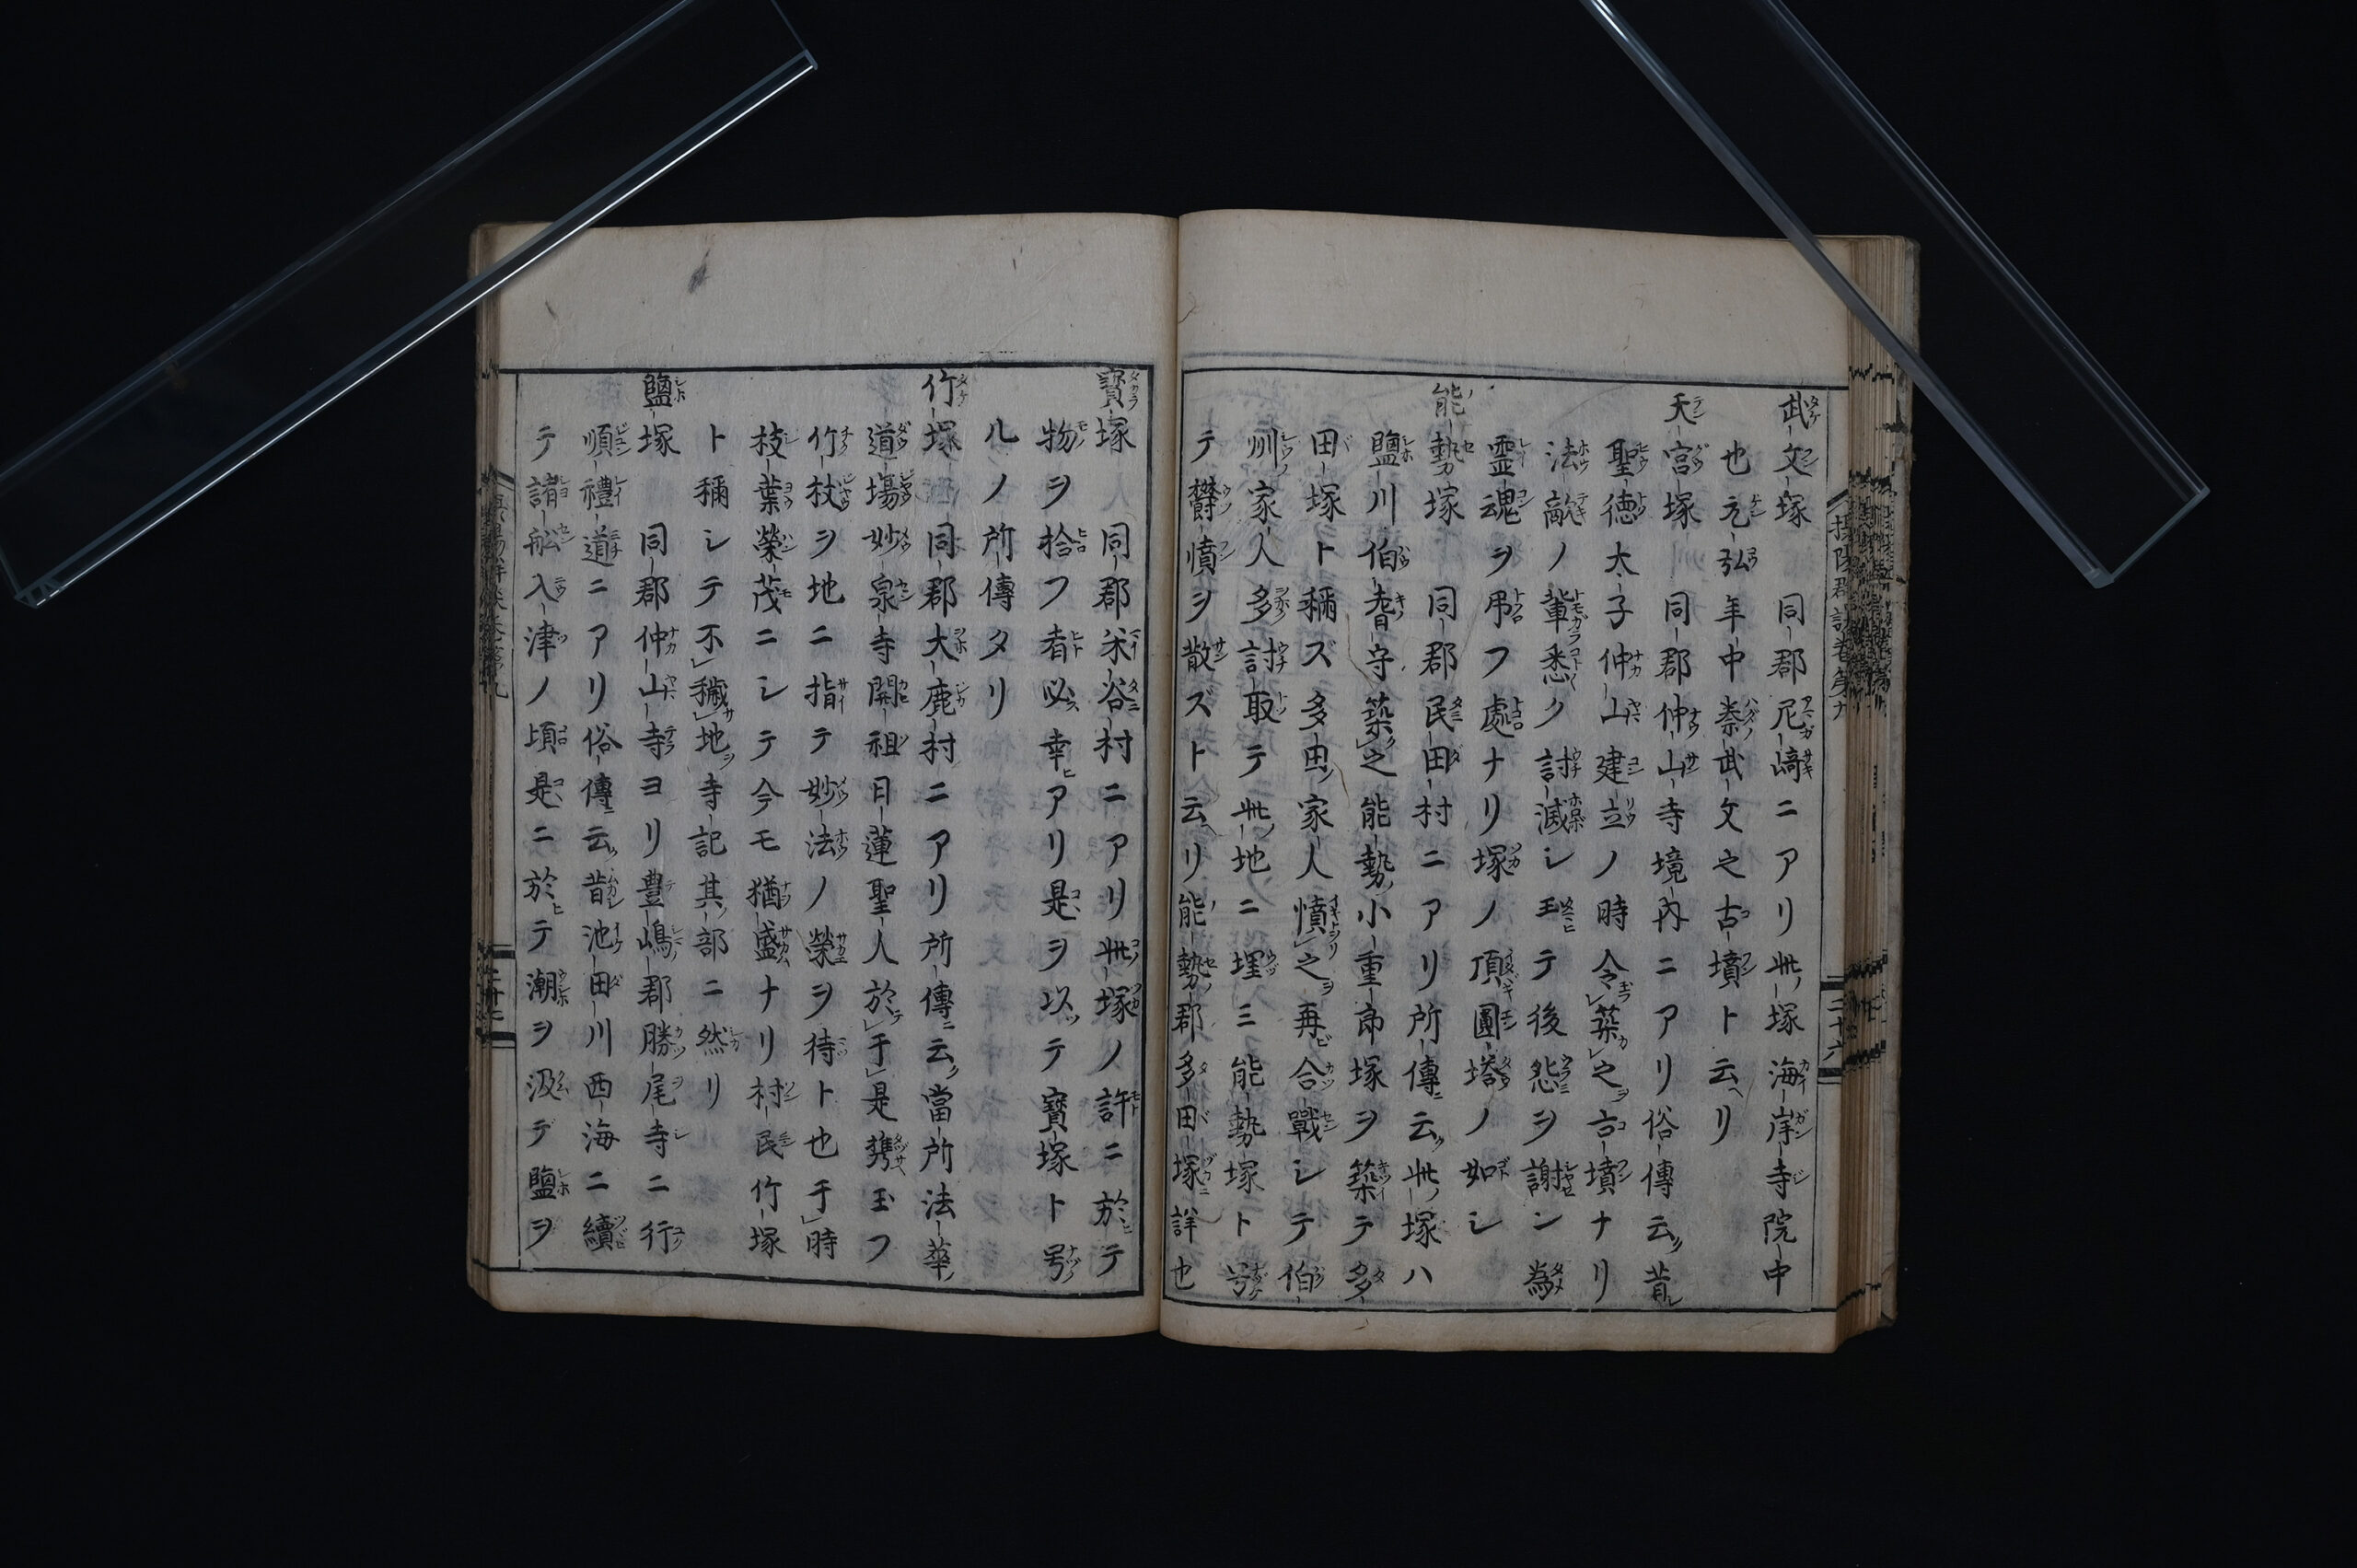 武文塚 同郡尼﨑ニアリ此塚海岸寺院中
也元弘年中秦武文之古墳ト云リ
天宮塚 同郡仲山寺境内ニアリ俗傳云昔
聖徳太子仲山建立ノ時令築之古墳ナリ
法敵ノ輩悉ク討滅シ玉テ後怨ヲ謝ン為
霊魂ヲ吊フ處ナリ塚ノ頂圓塔ノ如シ
能勢塚 同郡民田村ニアリ所傳云此塚ハ
鹽川伯耆守築之能勢小重郎塚ヲ築テ多
田塚ト稱ズ多田家人憤之再合戰シテ伯
州家人多討取テ此地ニ埋ミ能勢塚ト号
テ欝憤ヲ散ズト云リ能勢郡多田塚詳也
寳塚 同郡米谷村ニアリ此塚ノ許ニ於テ
物ヲ拾フ者必幸アリ是ヲ以テ寳塚ト号
ルノ所傳タリ
竹塚 同郡大鹿村ニアリ所傳云當所法華
道場妙泉寺開祖日蓮聖人於于是携玉フ
竹杖ヲ地ニ指テ妙法ノ榮ヲ待ト也于時
枝葉榮茂ニシテ今モ猶盛ナリ村民竹塚
ト稱シテ不穢地寺記其部ニ然リ
鹽塚 同郡仲山寺ヨリ豊嶋郡勝尾寺ニ行
順禮道ニアリ俗傳云昔池田川西海ニ續
テ諸舩入津ノ頃是ニ於テ潮ヲ汲テ鹽ヲ